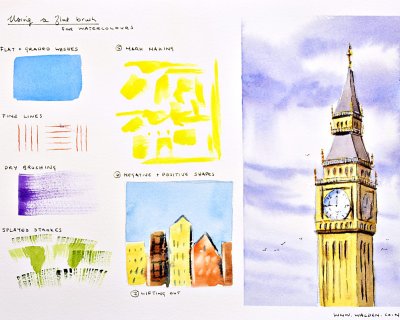 Using a flat brush
FOR WATERCOLOURS
FLAT + GRADED WASHES
FINE LINES
DRY BRUSHING
SPLAYED STROKES
① MARK MAKING
② NEGATIVE + POSITIVE SHAPES
③ LIFTING OUT